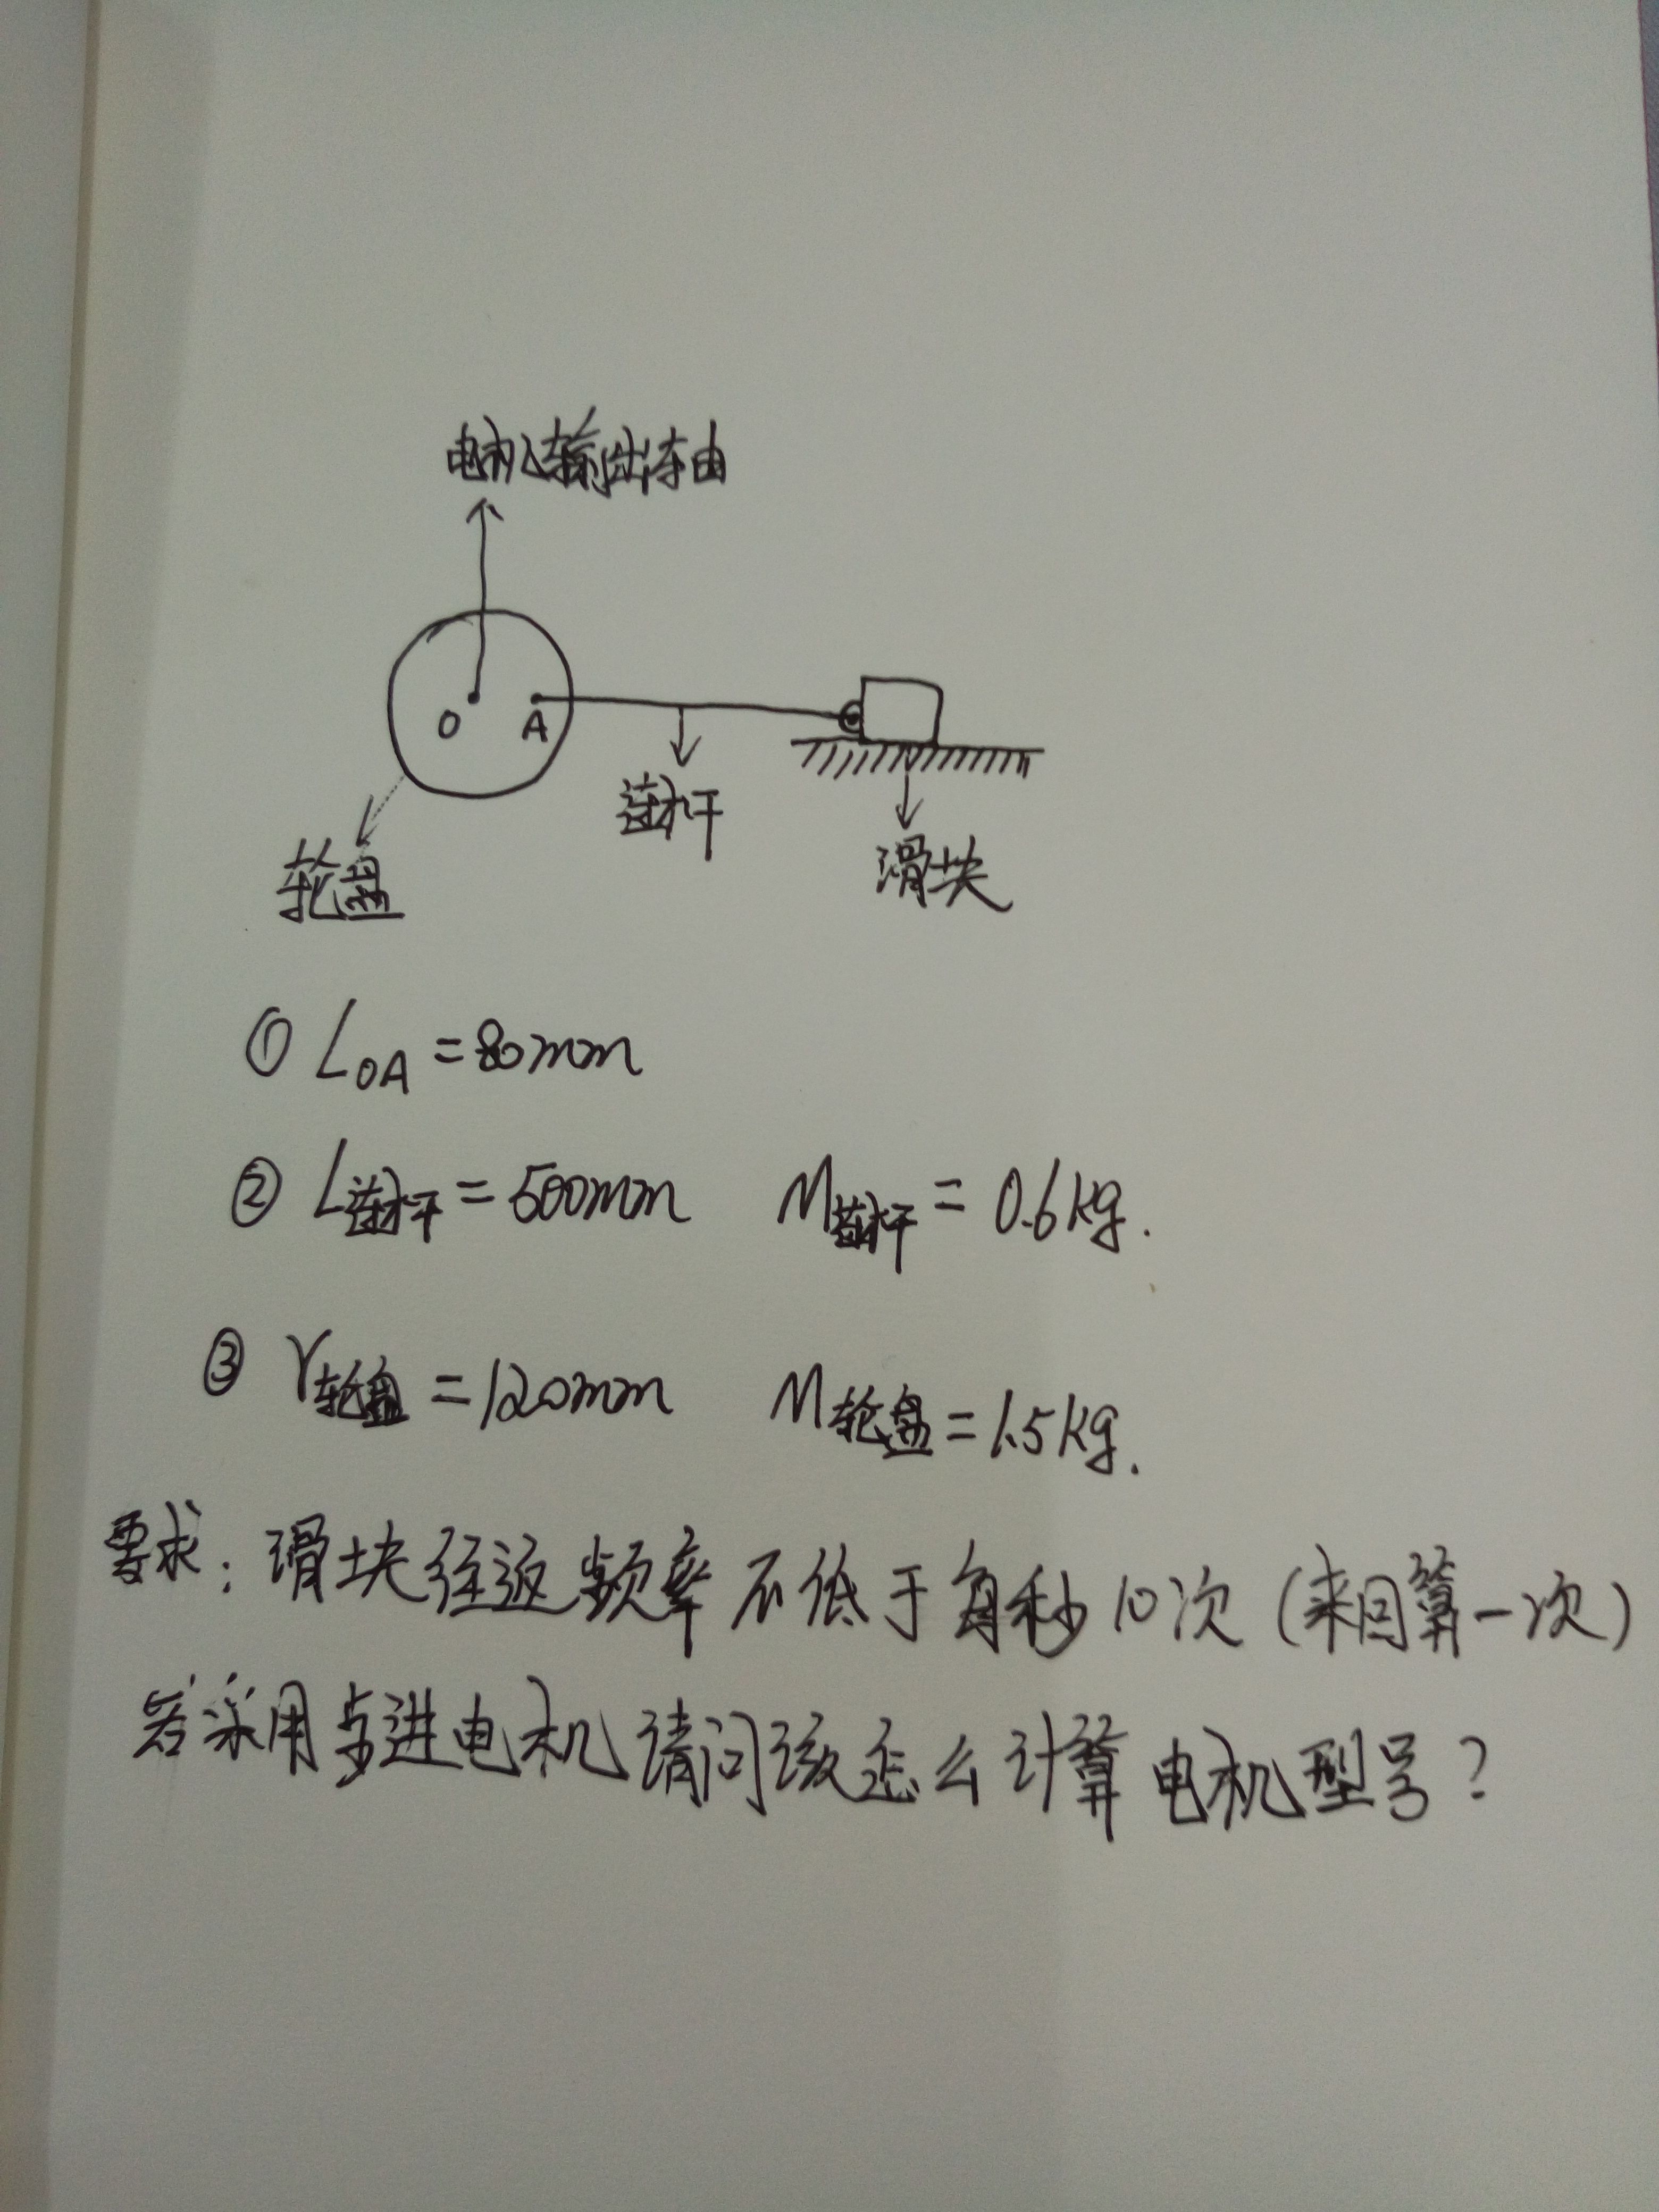 电机输出轴
O A
连杆
轮盘
滑块
① LOA = 80mm
② L连杆 = 500mm M连杆 = 0.6kg.
③ r轮盘 = 120mm M轮盘 = 1.5kg.
需求：滑块往返频率不低于每秒10次（来回算一次）
若采用步进电机请问该怎么计算电机型号？